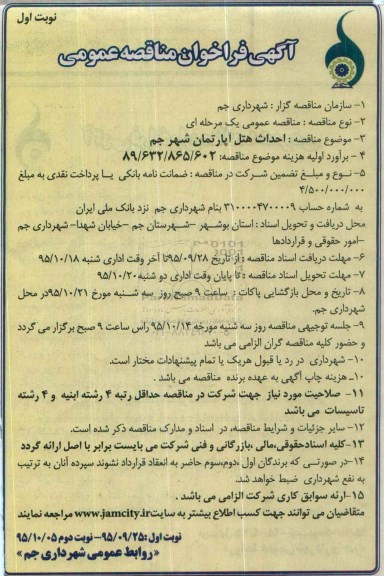 نوبت اول
آگهی فراخوان مناقصه عمومی
۱- سازمان مناقصه گزار : شهرداری جم
۲- نوع مناقصه : مناقصه عمومی یک مرحله ای
۳- موضوع مناقصه : احداث هتل آپارتمان شهر جم
۴- برآورد اولیه هزینه موضوع مناقصه: ۸۹/۶۳۲/۸۶۵/۶۰۲
۵- نوع و مبلغ تضمین شرکت در مناقصه : ضمانت نامه بانکی یا پرداخت نقدی به مبلغ
۴/۵۰۰/۰۰۰/۰۰۰
به شماره حساب ۳۱۰۰۰۰۴۷۰۰۰۰۹ بنام شهرداری جم نزد بانک ملی ایران
محل دریافت و تحویل اسناد : استان بوشهر –شهرستان جم –خیابان شهدا– شهرداری جم
–امور حقوقی و قراردادها
۶- مهلت دریافت اسناد مناقصه : از تاریخ ۹۵/۰۹/۲۸تا آخر وقت اداری شنبه ۹۵/۱۰/۱۸
۷- مهلت تحویل اسناد مناقصه : تا پایان وقت اداری دو شنبه۹۵/۱۰/۲۰
۸- تاریخ و محل بازگشایی پاکات : ساعت ۹ صبح روز سه شنبه مورخ ۹۵/۱۰/۲۱در محل
شهرداری جم.
۹- جلسه توجیهی مناقصه روز سه شنبه مورخه ۹۵/۱۰/۱۴ راس ساعت ۹ صبح برگزار می گردد
و حضور کلیه مناقصه گران الزامی می باشد
۱۰- شهرداری در رد یا قبول هریک یا تمام پیشنهادات مختار است.
۱۰- هزینه چاپ آگهی به عهده برنده مناقصه می باشد .
۱۱- صلاحیت مورد نیاز جهت شرکت در مناقصه حداقل رتبه ۴ رشته ابنیه و ۴ رشته
تاسیسات می باشد
۱۲- سایر جزئیات و شرایط مناقصه، در اسناد و مدارک مناقصه ذکر شده است.
۱۳-کلیه اسنادحقوقی،مالی ،بازرگانی و فنی شرکت می بایست برابر با اصل ارائه گردد
۱۴-در صورتی که برندگان اول ،دوم،سوم حاضر به انعقاد قرارداد نشوند سپرده آنان به ترتیب
به نفع شهرداری ضبط خواهد شد.
۱۵-ارئه سوابق کاری شرکت الزامی می باشد .
متقاضیان می توانند جهت کسب اطلاع بیشتر به سایت www.jamcity.ir مراجعه نمایند
نوبت اول:۹۵/۰۹/۲۵– نوبت دوم ۹۵/۱۰/۰۵
«روابط عمومی شهرداری جم»